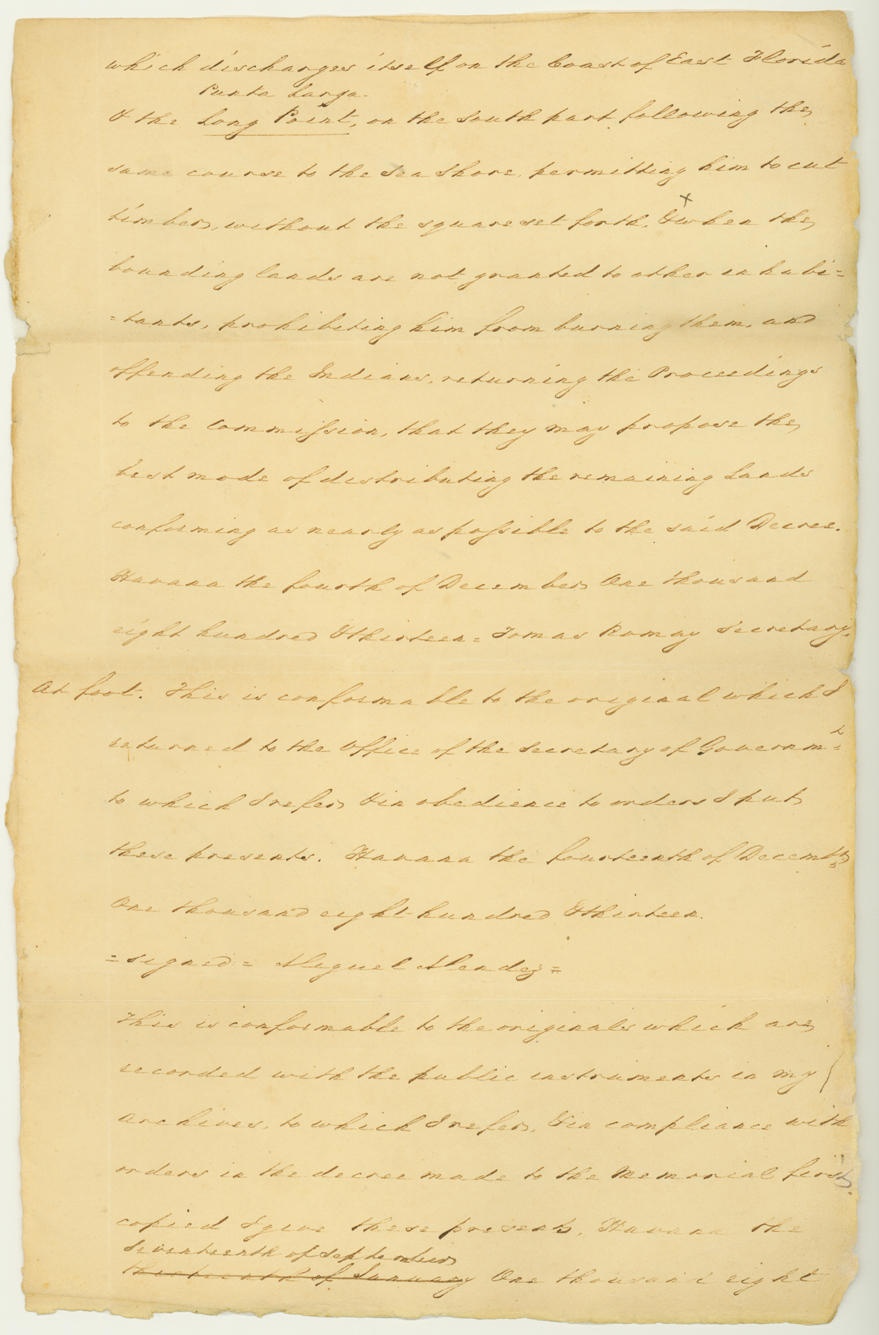 which discharges itself on the Coast of East Florida
Punta Larga.
& the Long Point, on the South part following the
same course to the Sea Shore, permitting him to cut
timber, without the square set forth, & when the
x
bounding lands are not granted to other inhabi=
=tants, prohibiting him from burning them, and
offending the Indians, returning the Proceedings
to the Commission, that they may propose the
best mode of distributing the remaining Lands
conforming as nearly as possible to the said Decree.
Havana the fourth of December One thousand
eight hundred & thirteen = Tomas Romay Secretary.
At foot. This is conformable to the original which I
returned to the Office of the Secretary of Governmt=
to which I refer, & in obedience to orders I put
these presents. Havana the fourteenth of Decembr
One thousand eight hundred & thirteen.
= signed = Miguel Mendez =
This is conformable to the originals which are
recorded with the public instruments in my
archives, to which I refer, & in compliance with
orders in the decree made to the Memorial first
copied I give these presents, Havana the
Seventeenth of September
thirteenth of January One thousand eight